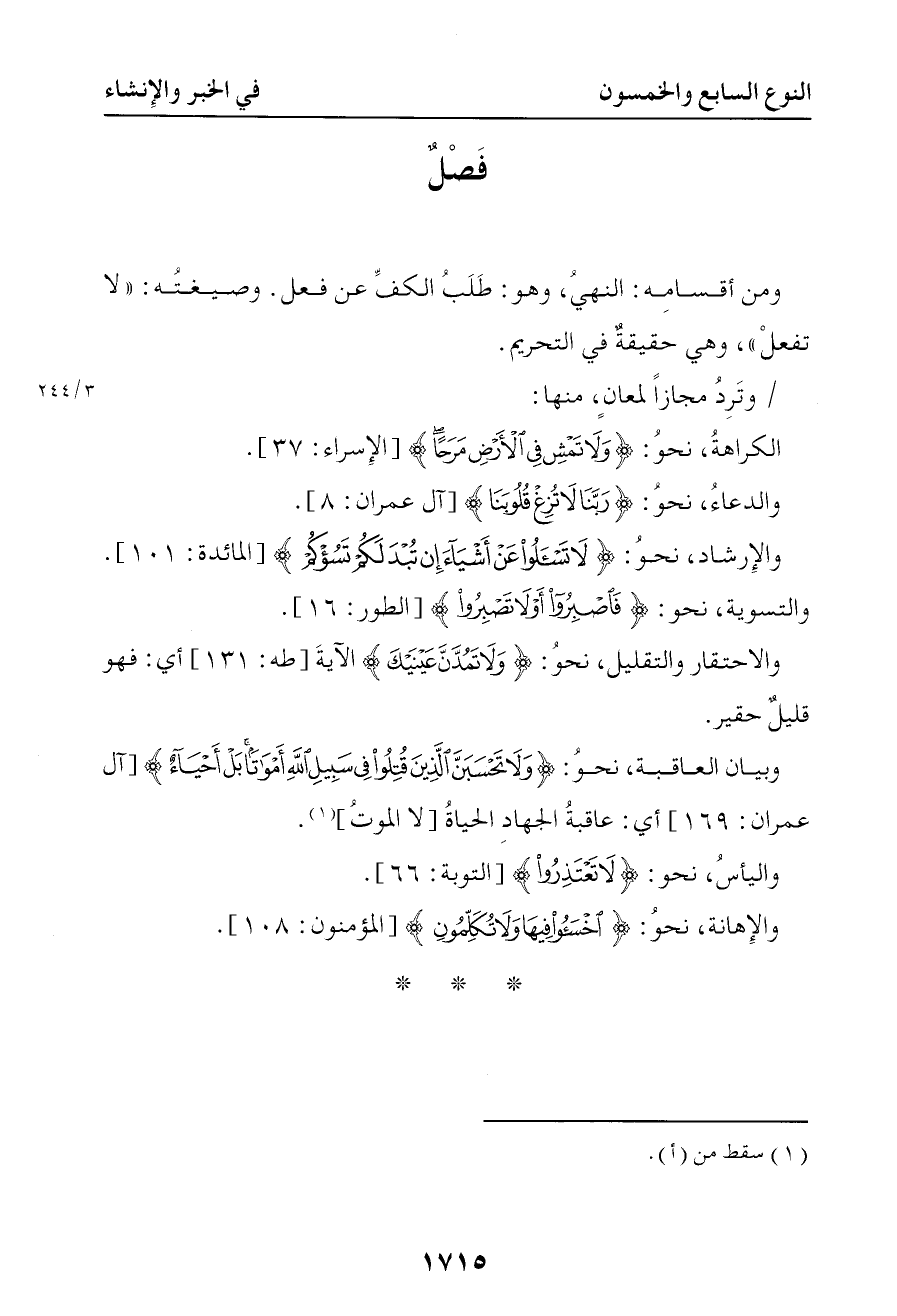 النوع السابع والخمسون في الخبر والإنشاء
فَصْلٌ
ومن أقسامِه: النهيُ، وهو: طَلَبُ الكفِّ عن فعل. وصيغتُه: «لا
تفعلْ»، وهي حقيقةٌ في التحريم.
/ وتَرِدُ مجازاً لمعانٍ، منها: ٢٤٤/٣
الكراهةُ، نحوُ: ﴿وَلَا تَمْشِ فِي ٱلْأَرْضِ مَرَحًاۖ﴾ [الإسراء: ٣٧].
والدعاءُ، نحوُ: ﴿رَبَّنَا لَا تُزِغْ قُلُوبَنَا﴾ [آل عمران: ٨].
والإرشاد، نحوُ: ﴿لَا تَسْـَٔلُوا۟ عَنْ أَشْيَآءَ إِن تُبْدَ لَكُمْ تَسُؤْكُمْ﴾ [المائدة: ١٠١].
والتسوية، نحو: ﴿فَٱصْبِرُوٓا۟ أَوْ لَا تَصْبِرُوا۟﴾ [الطور: ١٦].
والاحتقار والتقليل، نحوُ: ﴿وَلَا تَمُدَّنَّ عَيْنَيْكَ﴾ الآيةَ [طه: ١٣١] أي: فهو
قليلٌ حقير.
وبيان العاقبة، نحوُ: ﴿وَلَا تَحْسَبَنَّ ٱلَّذِينَ قُتِلُوا۟ فِي سَبِيلِ ٱللَّهِ أَمْوَٰتًۢاۚ بَلْ أَحْيَآءٌ﴾ [آل
عمران: ١٦٩] أي: عاقبةُ الجهادِ الحياةُ [لا الموتُ](١).
واليأسُ، نحو: ﴿لَا تَعْتَذِرُوا۟﴾ [التوبة: ٦٦].
والإهانة، نحوُ: ﴿ٱخْسَـُٔوا۟ فِيهَا وَلَا تُكَلِّمُونِ﴾ [المؤمنون: ١٠٨].
* * *
(١) سقط من (أ).
١٧١٥